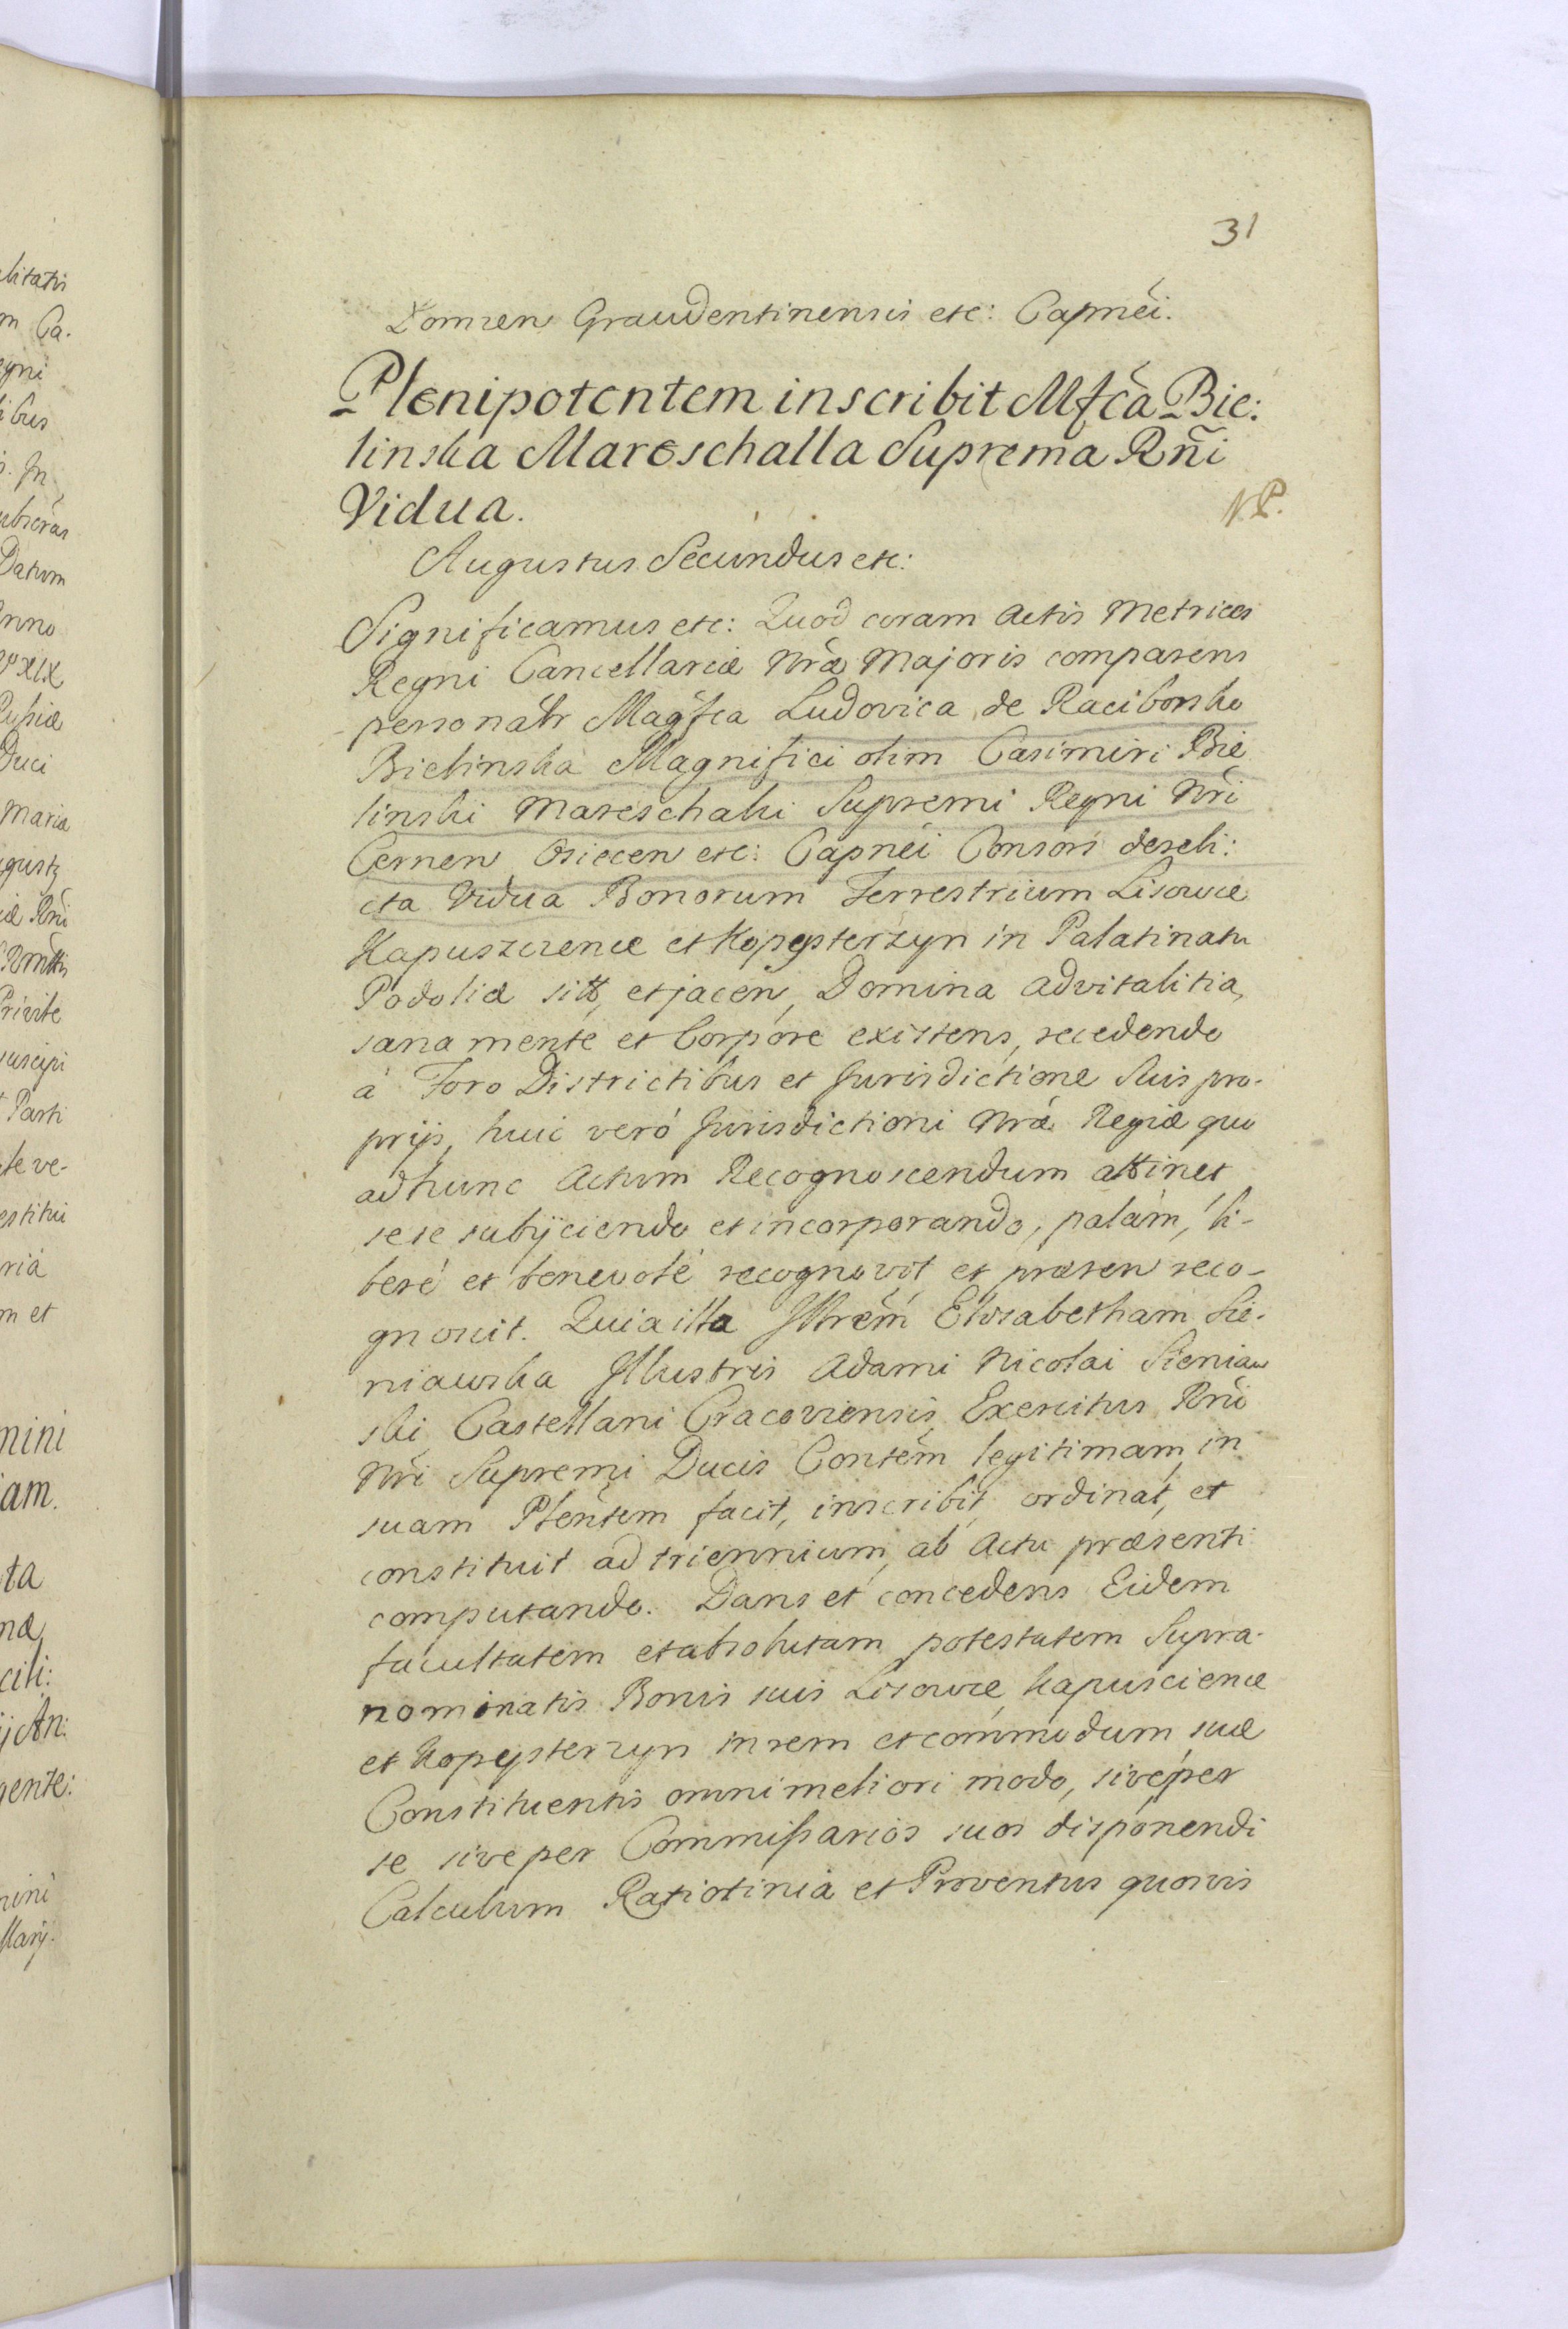 31
Łomzen Graudentinensis etc: Capnēi.
Plenipotentem inscribit Mfcā Bie:
linska Mareschalla Suprema Rñi
Vidua.
N.P.
Augustus Secundus etc:
Significamus etc: Quod coram Actis Metrices
Regni Cancellariæ Nræ Majoris comparens
personalr Magfca Ludovica de Raciborsko
Bielinska Magnifici olim Casimiri Bie
linski Mareschalii Supremi Regni Nri
Cernen Osiecen etc: Capnēi Consors dereli:
cta Vidua Bonorum Terrestrium Lisowce
Kapuszczence et Kopeysterzyn in Palatinatu
Podoliæ sitt, et jacen, Domina advitalitia,
sana mente et Corpore existens, recedendo
à Foro Districtibus et Jurisdictione suis pro-
prijs, huic veró Jurisdictioni Nræ Regiæ quo
ad hunc Actum Recognoscendum attinet
sese subijciendo et incorporando, palám, li-
beré et benevolé recognovit, et præsen reco-
gnoscit. Quia illa Illtrem Elisabetham Sie-
niawska Illustris Adami Nicolai Sieniaw
ski Castellani Cracoviensis, Exercitus Rni
Nri Supremi Ducis Contêm legitimam, in
suam Plentem facit, inscribit, ordinat, et
constituit ad triennium, ab Actu præsenti
computando. Dans et concedens Eidem
facultatem et absolutam potestatem Supra-
nominatis Bonis suis Lisowce, Kapuscience
et Kopeysterzyn in rem et commodum suæ
Constituentis omni meliori modo, sivé per
se sive per Commissarios suos disponendi
Calculum Ratiotinia et Proventus quosvis